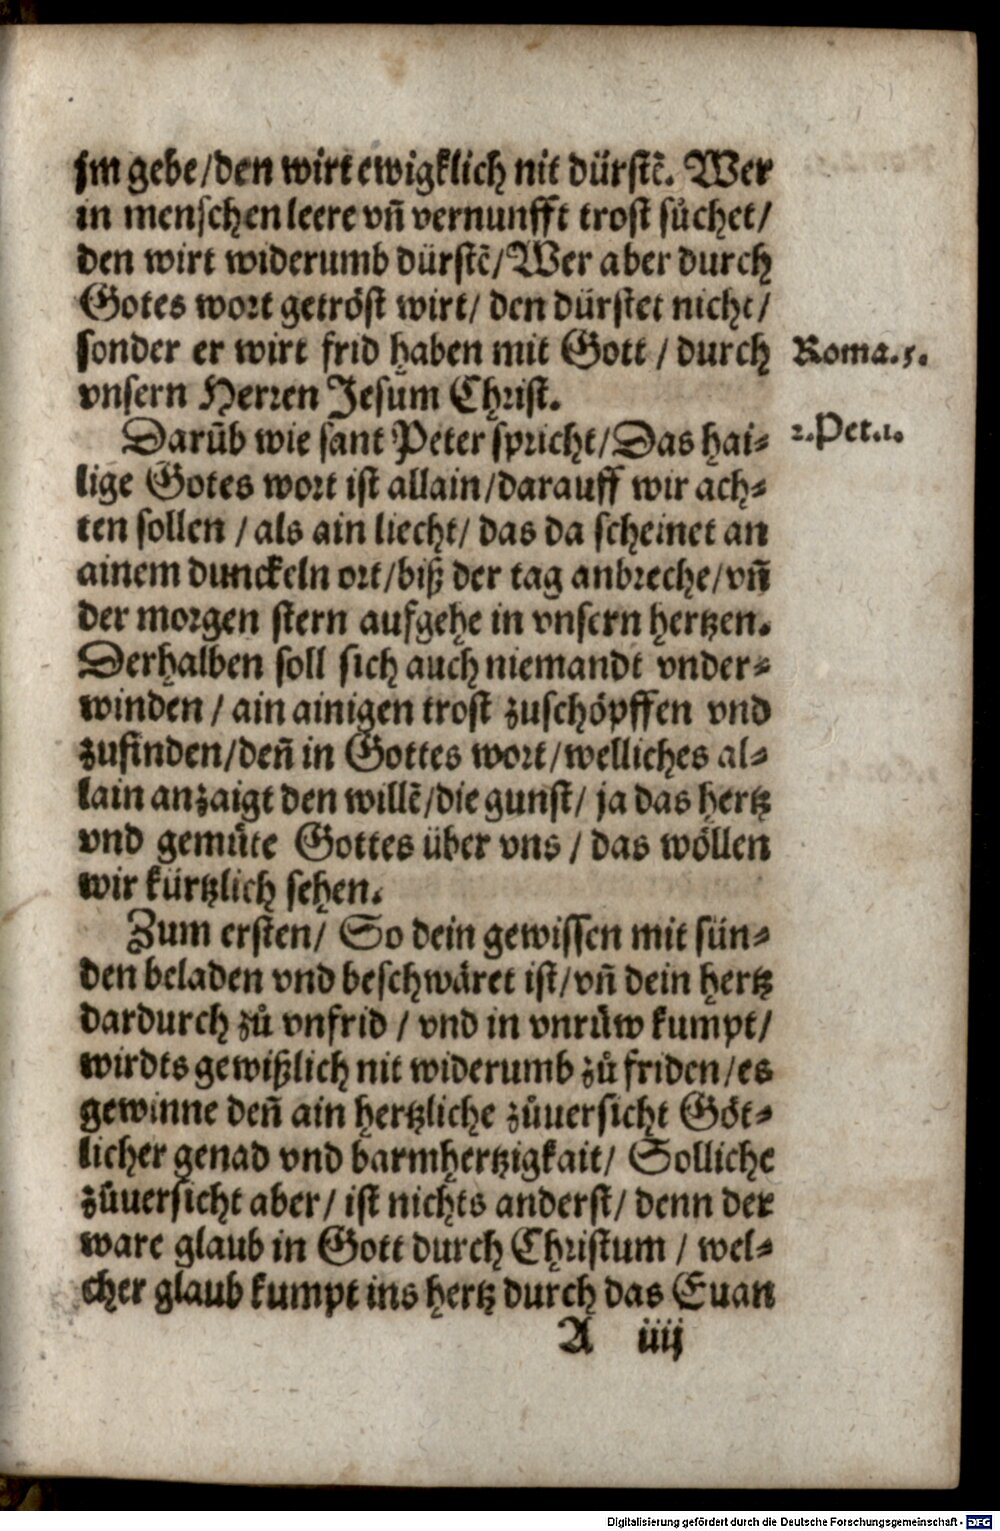 jm gebe/den wirt ewigklich nit dürstẽ. Wer
in menschen leere vñ vernunfft trost sůchet/
den wirt widerumb dürstẽ/Wer aber durch
Gotes wort getröst wirt/ den dürstet nicht/
sonder er wirt frid haben mit Gott / durch
Roma.5.
vnsern Herren Jesum Christ.
Darũb wie sant Peter spricht/Das hai⸗
2.Pet.1.
lige Gotes wort ist allain/darauff wir ach⸗
ten sollen / als ain liecht/ das da scheinet an
ainem dunckeln ort/biß der tag anbreche/vñ
der morgen stern aufgehe in vnsern hertzen.
Derhalben soll sich auch niemandt vnder⸗
winden / ain ainigen trost zuschöpffen vnd
zufinden/deñ in Gottes wort/welliches al⸗
lain anzaigt den willẽ/die gunst/ ja das hertz
vnd gemůte Gottes über vns / das wöllen
wir kürtzlich sehen.
Zum ersten/ So dein gewissen mit sün⸗
den beladen vnd beschwäret ist/vñ dein hertz
dardurch zů vnfrid / vnd in vnrůw kumpt/
wirdts gewißlich nit widerumb zů friden/es
gewinne deñ ain hertzliche zůuersicht Göt⸗
licher genad vnd barmhertzigkait/ Solliche
zůuersicht aber/ ist nichts anderst/ denn der
ware glaub in Gott durch Christum / wel⸗
cher glaub kumpt ins hertz durch das Euan
A iiij
Digitalisierung gefördert durch die Deutsche Forschungsgemeinschaft - DFG